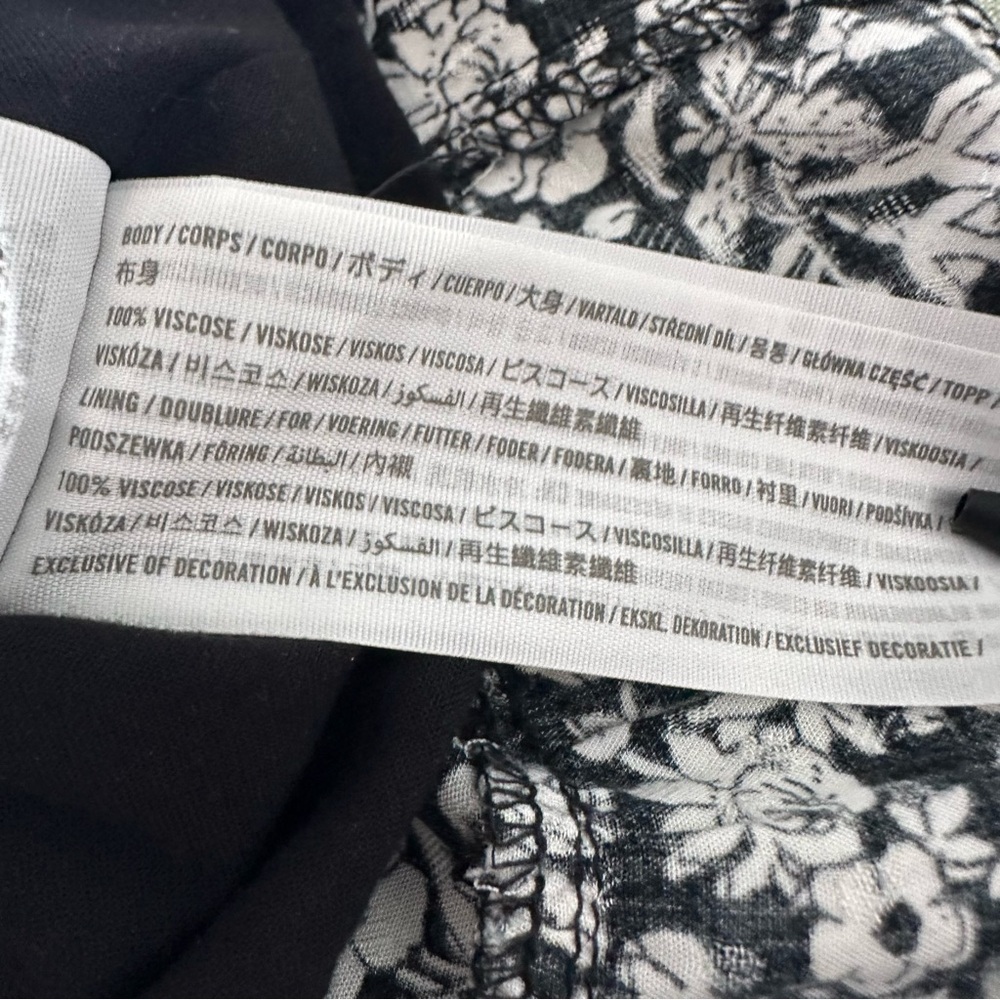 BODY / CORPS / CORPO / ボディ / CUERPO / 大身 / VARTALO / STŘEDNÍ DÍL / 몸통 / GŁÓWNA CZĘŚĆ / TOPP /
布身
100% VISCOSE / VISKOSE / VISKOS / VISCOSA / ビスコース / VISCOSILLA / 再生纤维素纤维 / VISKOOSIA /
VISKÓZA / 비스코스 / WISKOZA / الفسكوز / 再生纖維素纖維
LINING / DOUBLURE / FOR / VOERING / FUTTER / FODER / FODERA / 裏地 / FORRO / 衬里 / VUORI / PODŠÍVKA /
PODSZEWKA / FÔRING / البطانة / 內襯
100% VISCOSE / VISKOSE / VISKOS / VISCOSA / ビスコース / VISCOSILLA / 再生纤维素纤维 / VISKOOSIA /
VISKÓZA / 비스코스 / WISKOZA / الفسكوز / 再生纖維素纖維
EXCLUSIVE OF DECORATION / À L'EXCLUSION DE LA DÉCORATION / EKSKL. DEKORATION / EXCLUSIEF DECORATIE /